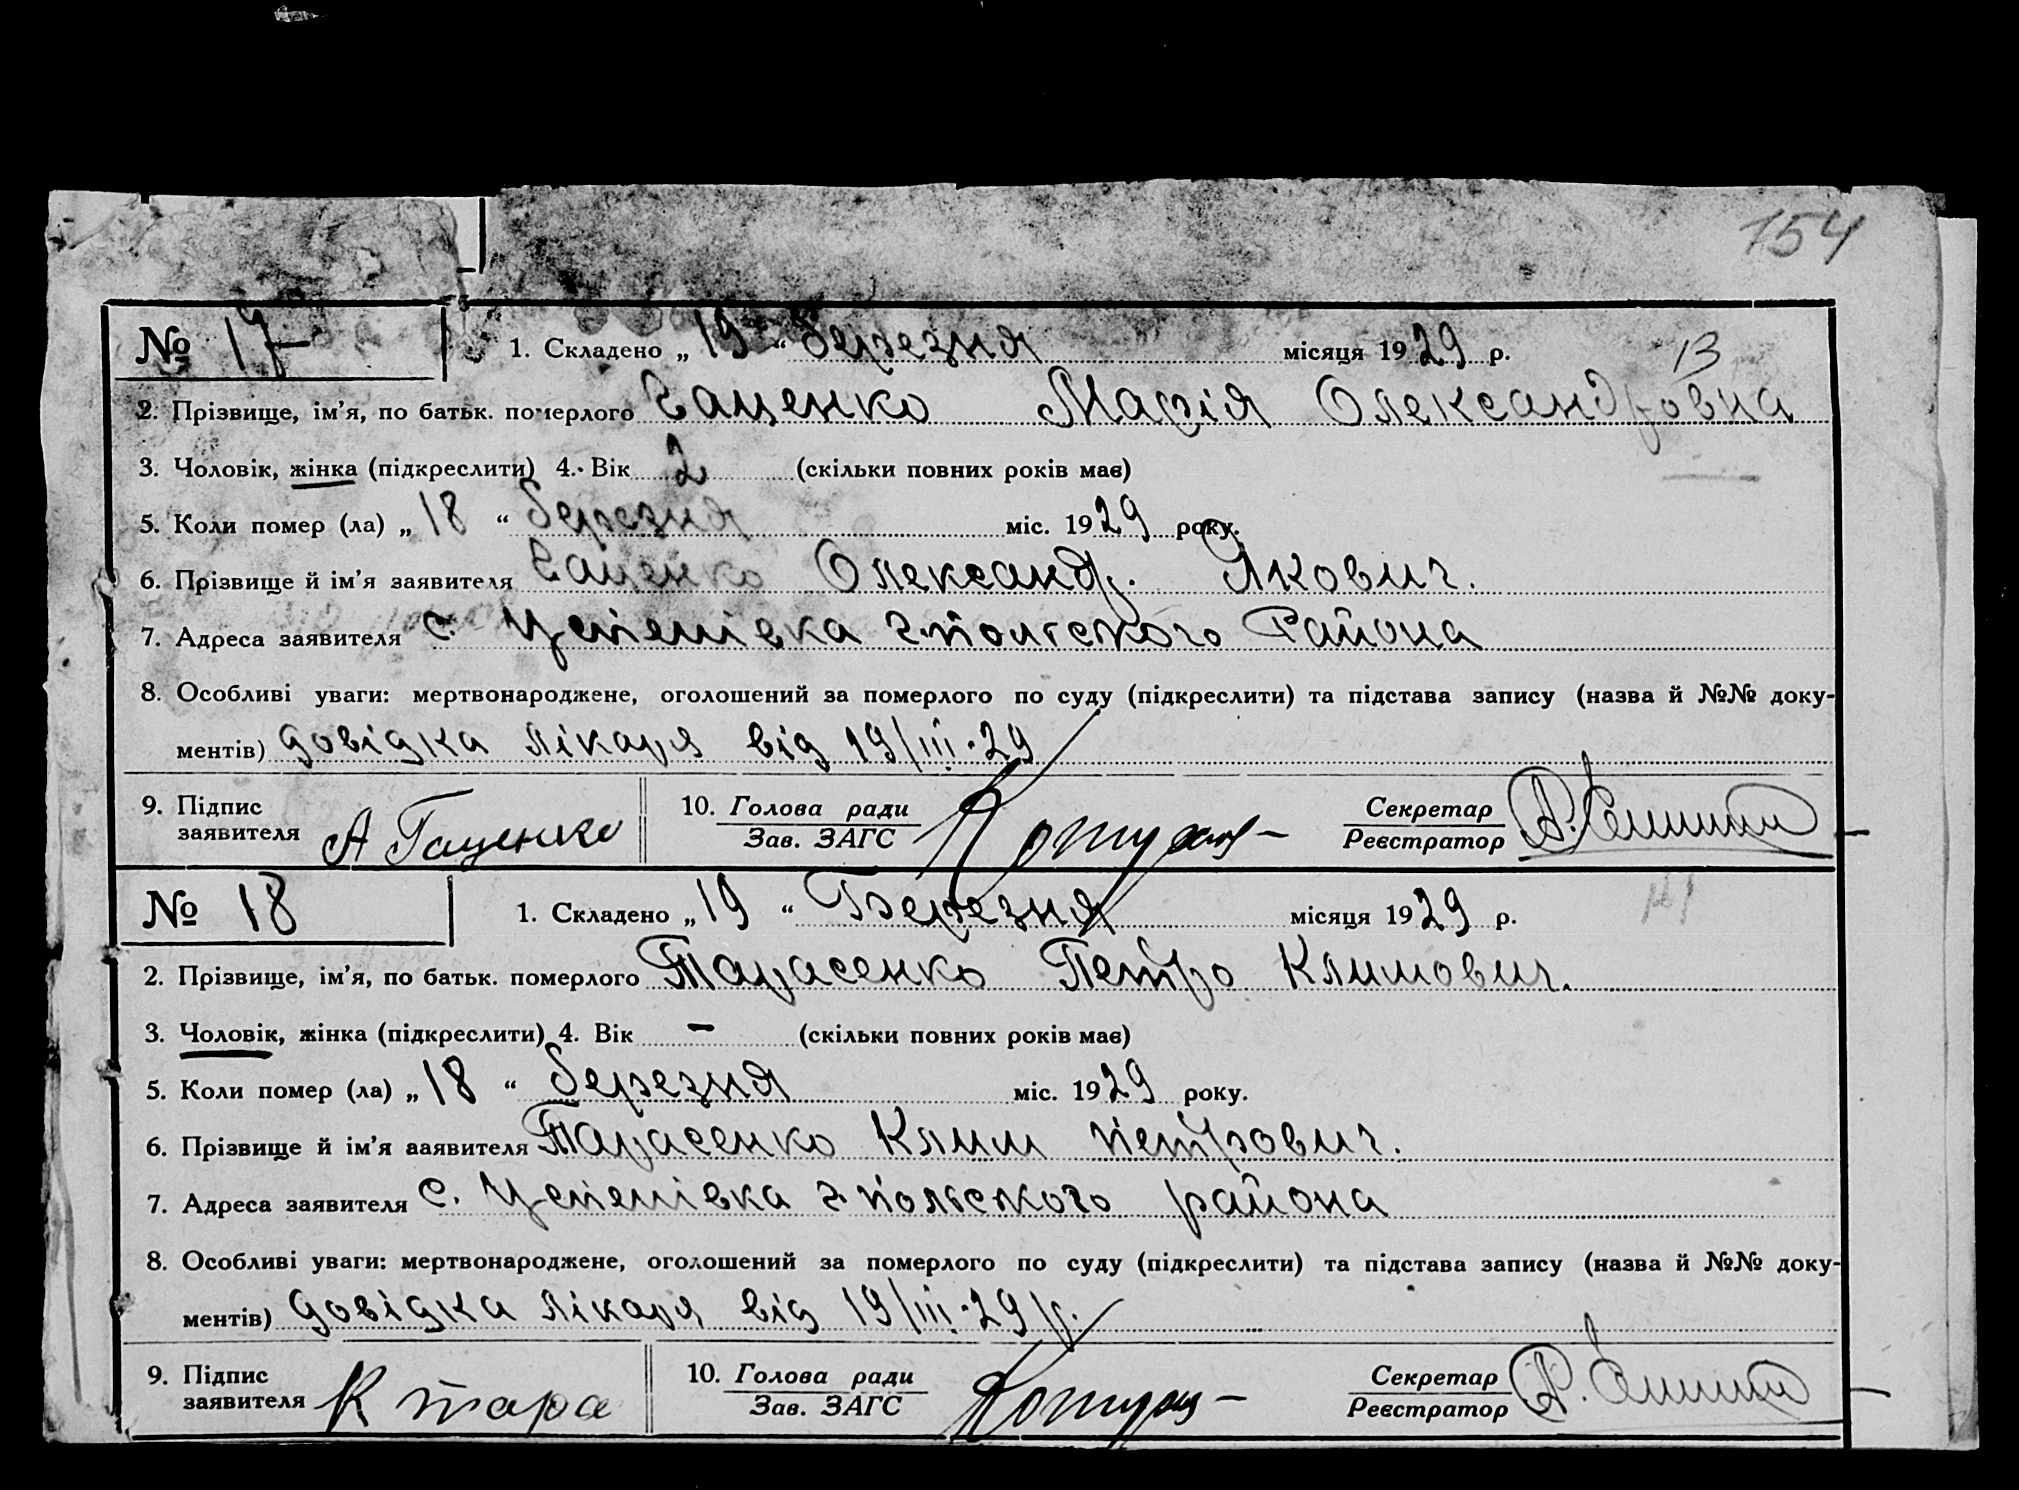 154
№ 17 1. Складено „ 19 “ березня місяця 1929 р. 13
2. Прізвище, ім’я, по батьк. померлого Гаценко Марія Олександровна
3. Чоловік, жінка (підкреслити) 4. Вік 2 (скільки повних років має)
5. Коли помер (ла) „ 18 “ березня міс. 1929 року.
6. Прізвище й ім’я заявителя Гаценко Олександр. Якович.
7. Адреса заявителя с. Успенівка г.польского Района
8. Особливі уваги: мертвонароджене, оголошений за померлого по суду (підкреслити) та підстава запису (назва й №№ доку-
ментів) довідка лікаря від 19/III·29
9. Підпис заявителя А Гаценко 10. Голова ради Секретар
Зав. ЗАГС Реєстратор
№ 18 1. Складено „ 19 “ Березня місяця 1929 р. 14
2. Прізвище, ім’я, по батьк. померлого Тарасенко Петро Климович.
3. Чоловік, жінка (підкреслити) 4. Вік – (скільки повних років має)
5. Коли помер (ла) „ 18 “ березня міс. 1929 року.
6. Прізвище й ім’я заявителя Тарасенко Клим петрович.
7. Адреса заявителя с. Успенівка г.польского района
8. Особливі уваги: мертвонароджене, оголошений за померлого по суду (підкреслити) та підстава запису (назва й №№ доку-
ментів) довідка лікаря від 19/III·29 р.
9. Підпис заявителя К тара 10. Голова ради Секретар
Зав. ЗАГС Реєстратор